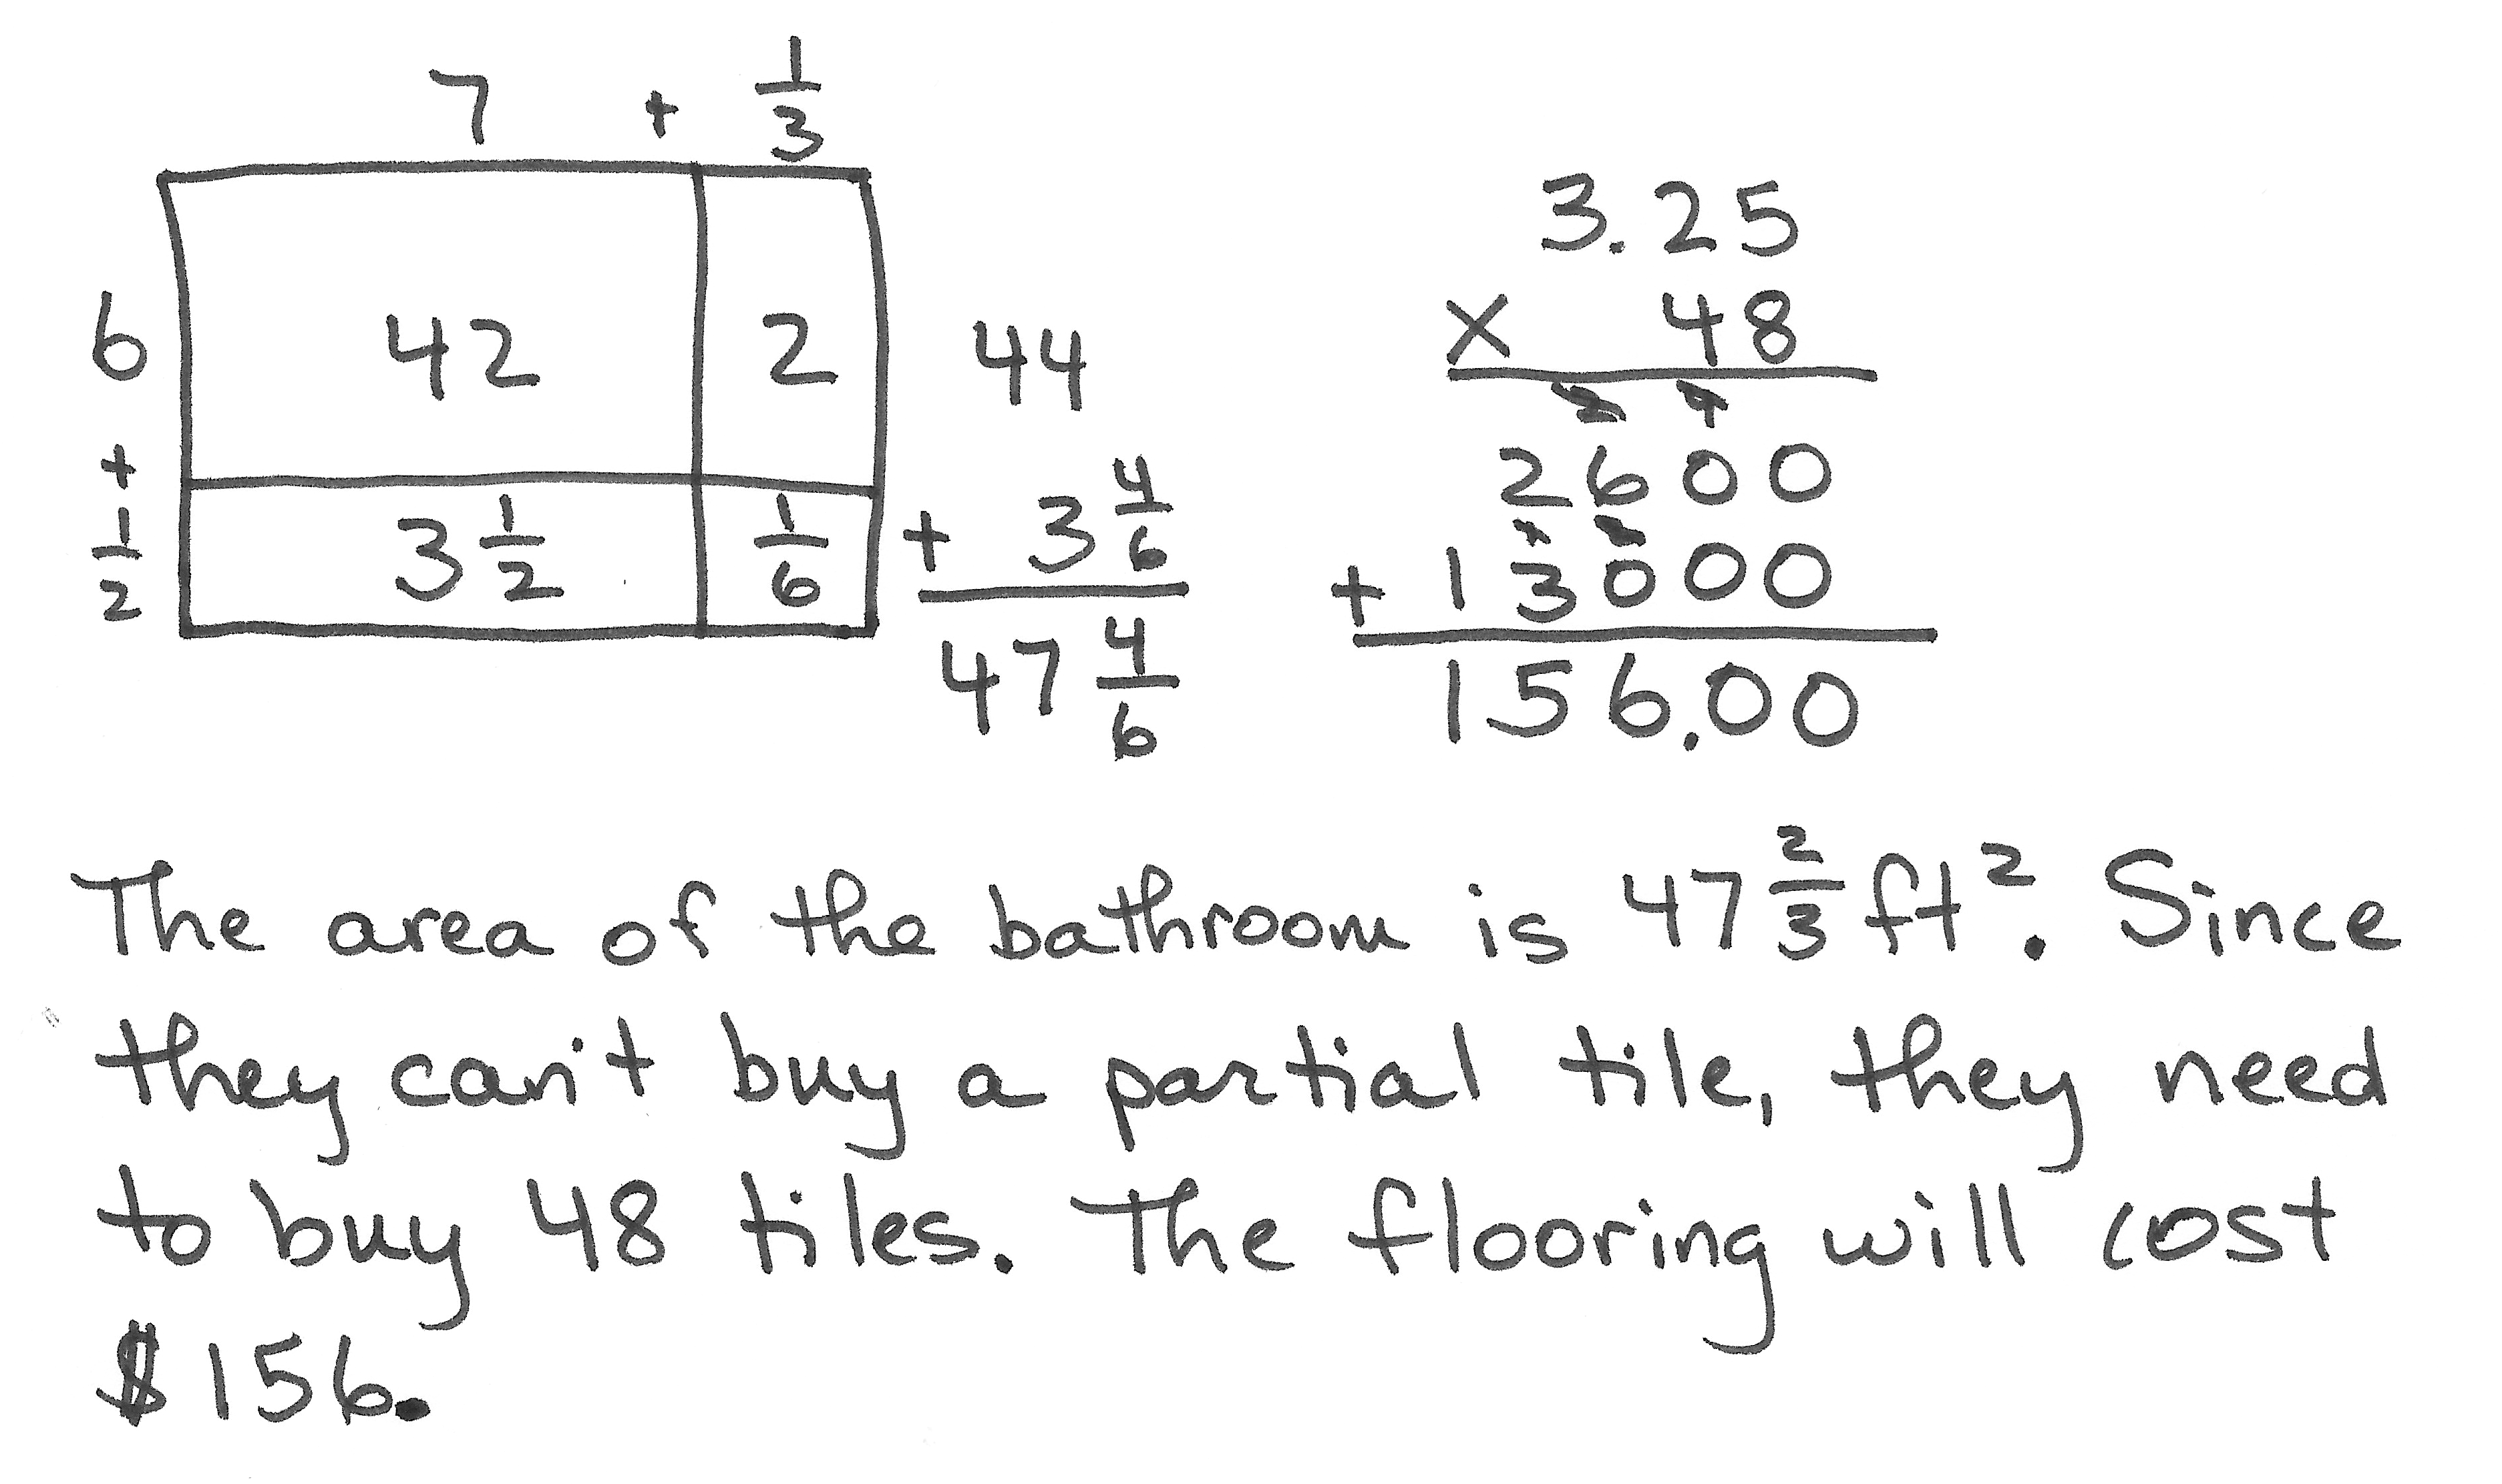 7 + 1/3
6 + 1/2
42 2
3 1/2 1/6
44
+ 3 4/6
47 4/6
3.25
x 48
2 4
2600
1 2
+ 13000
156.00
The area of the bathroom is 47 2/3 ft². Since
they can't buy a partial tile, they need
to buy 48 tiles. The flooring will cost
$156.